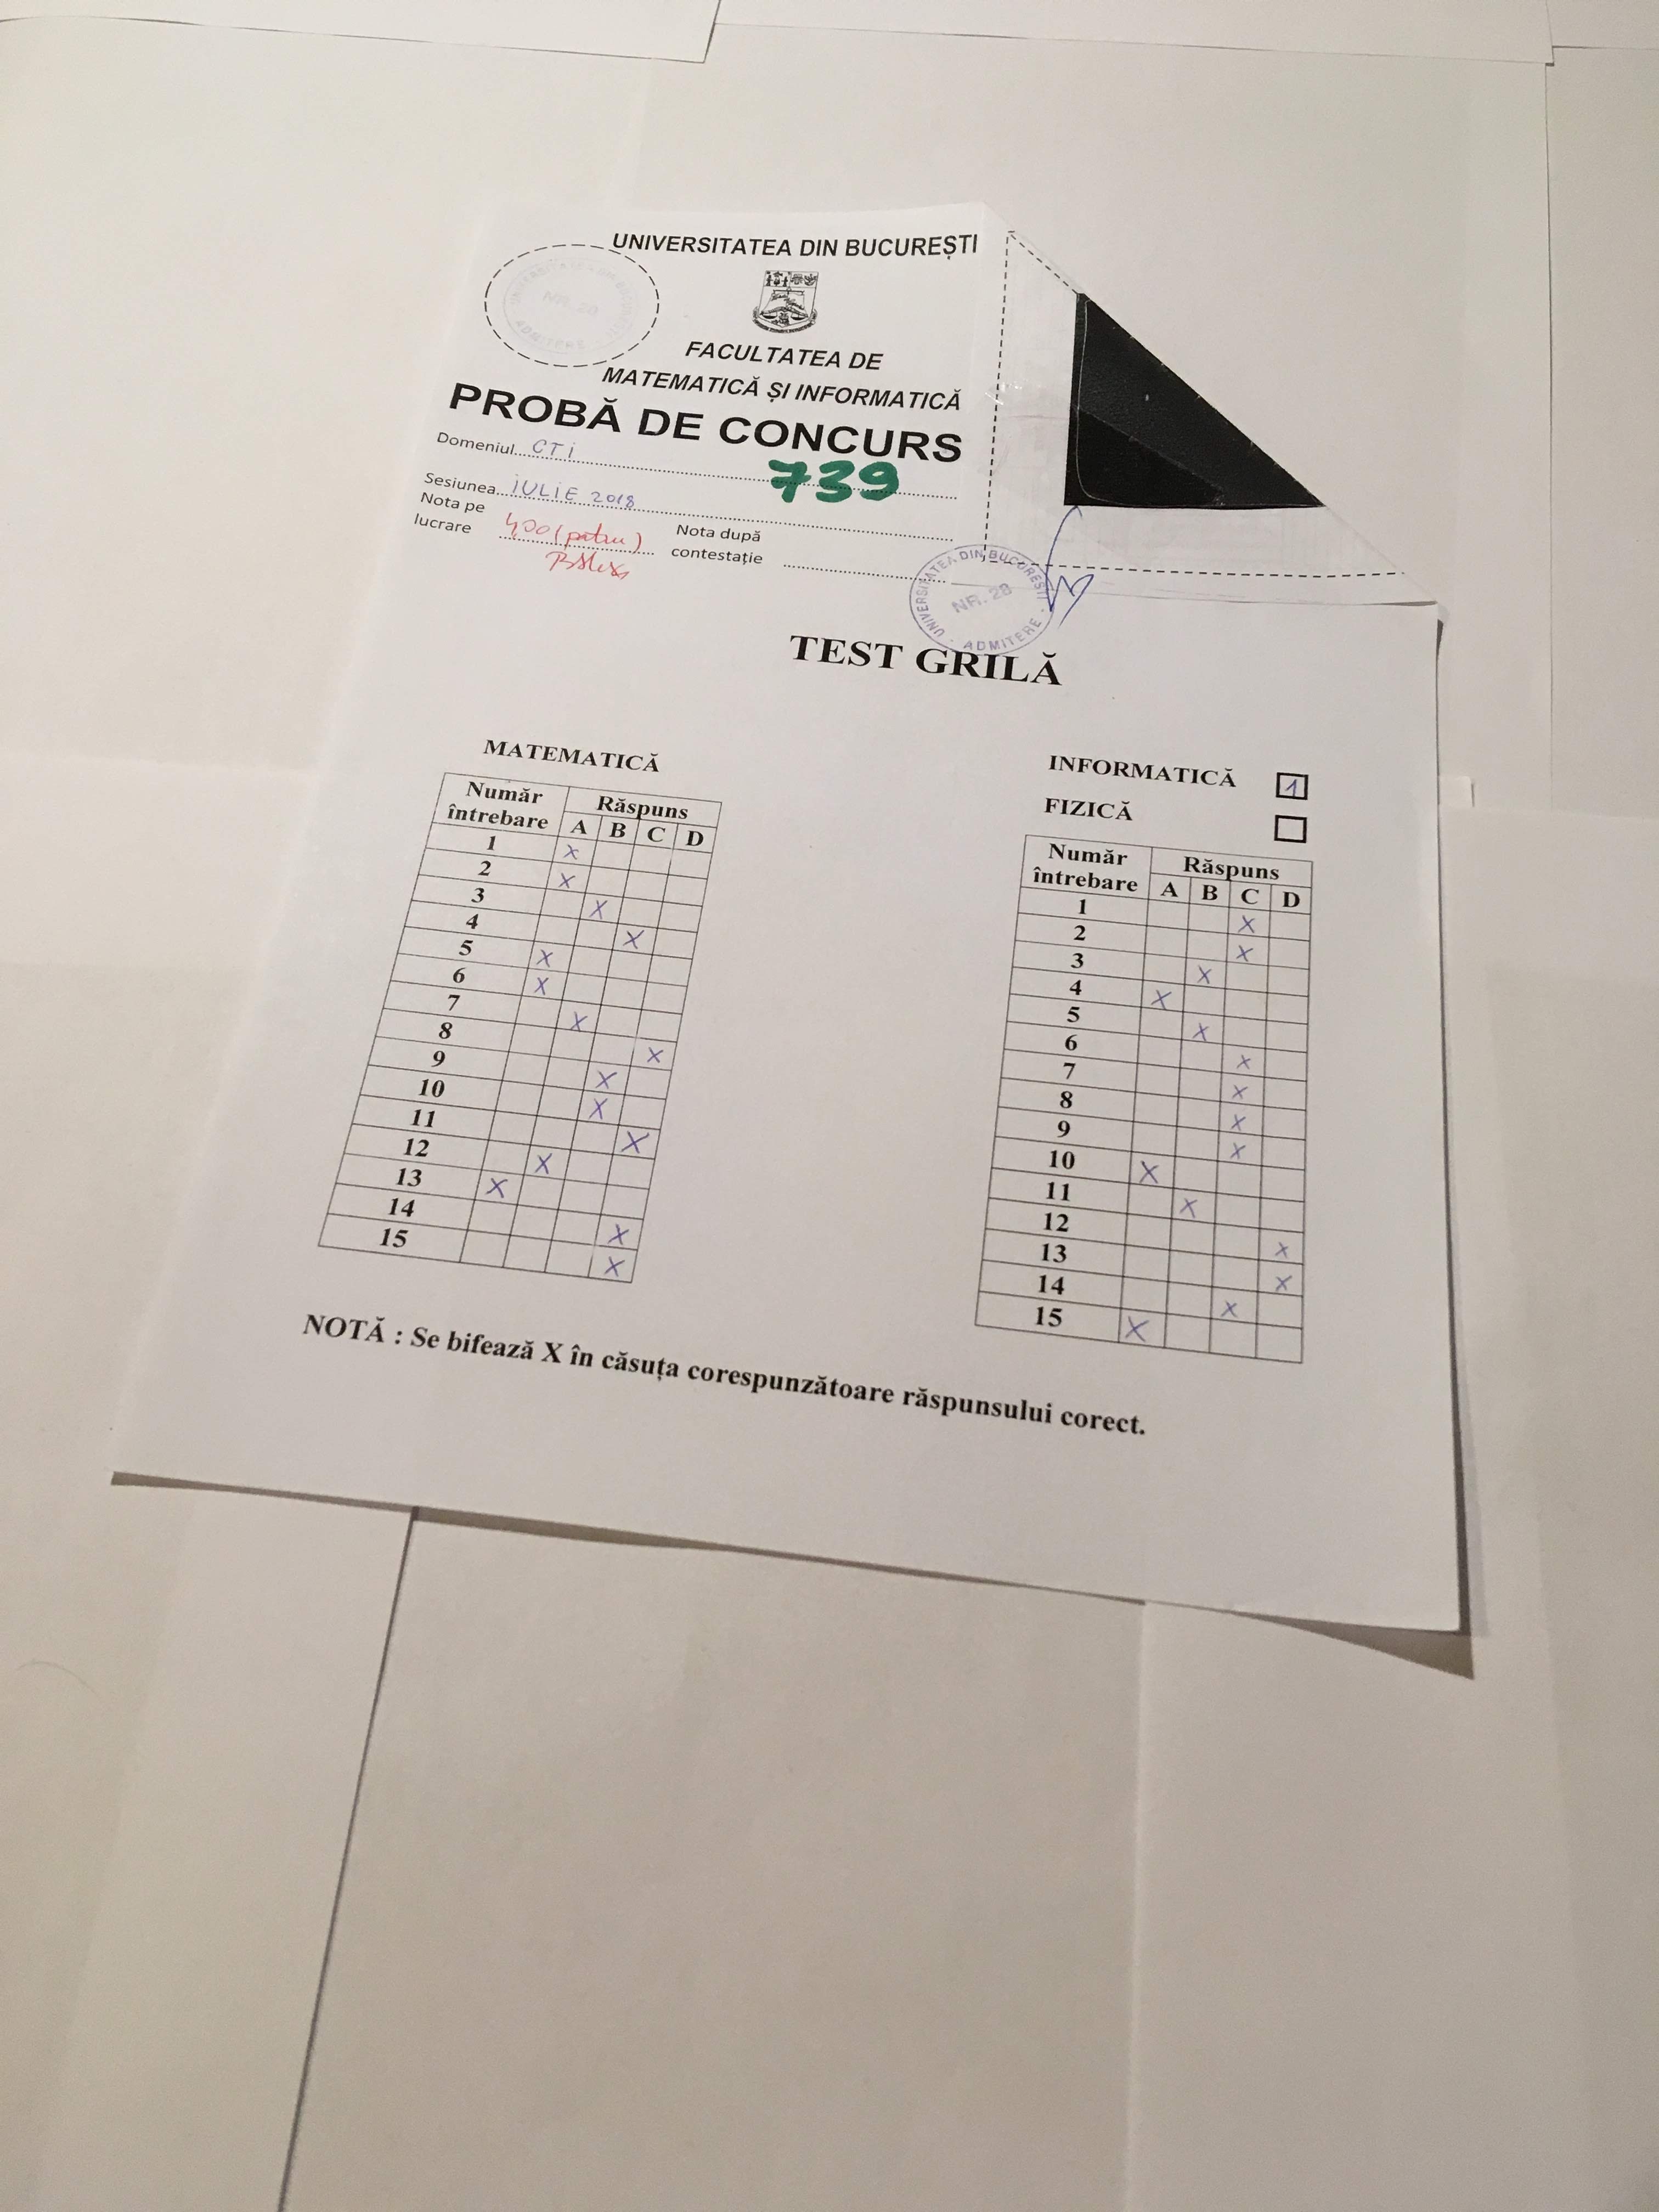 UNIVERSITATEA DIN BUCUREȘTI
ADMITERE
FACULTATEA DE
MATEMATICĂ ȘI INFORMATICĂ
PROBĂ DE CONCURS
Domeniul CTI
739
Sesiunea IULIE 2018
Nota pe
lucrare 4,00 (patru)
Nota după
contestație
UNIVERSITATEA DIN BUCUREȘTI
NR. 28
ADMITERE
TEST GRILĂ
MATEMATICĂ
Număr
întrebare
Răspuns
A B C D
1 X
2 X
3 X
4 X
5 X
6 X
7 X
8 X
9 X
10 X
11 X
12 X
13 X
14 X
15 X
INFORMATICĂ 1
FIZICĂ
Număr
întrebare
Răspuns
A B C D
1 X
2 X
3 X
4 X
5 X
6 X
7 X
8 X
9 X
10 X
11 X
12 X
13 X
14 X
15 X
NOTĂ : Se bifează X în căsuța corespunzătoare răspunsului corect.